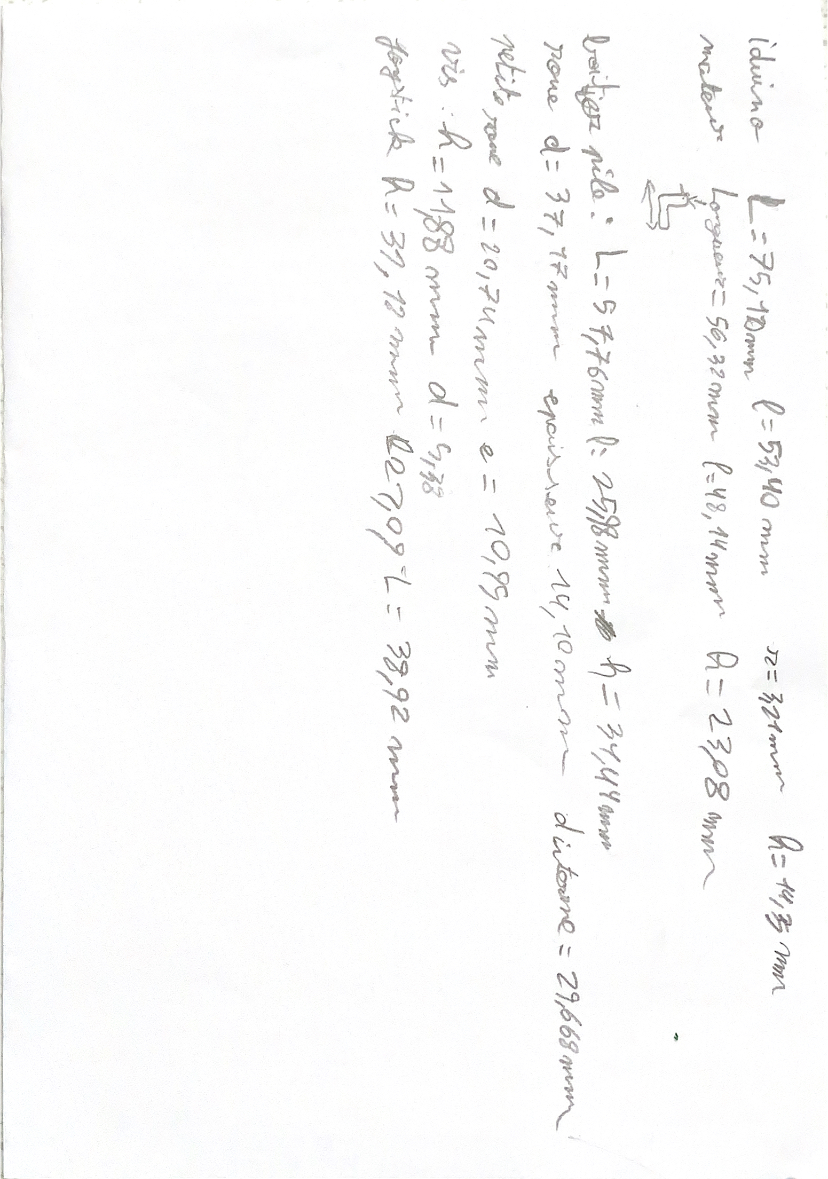 iduino L=75,10mm l=53,40mm r=3,21mm h=14,35mm
moteur Longueur=56,32mm l=48,14mm h=23,08mm
boitier pile: L=57,76mm l=25,98mm h=31,44mm
roue d=37,17mm epaisseur 14,10mm d interne=29,668mm
petite roue d=20,74mm e=10,95mm
vis: h=11,88mm d=5,38
joystick h=31,12mm l27,09 L=38,92mm